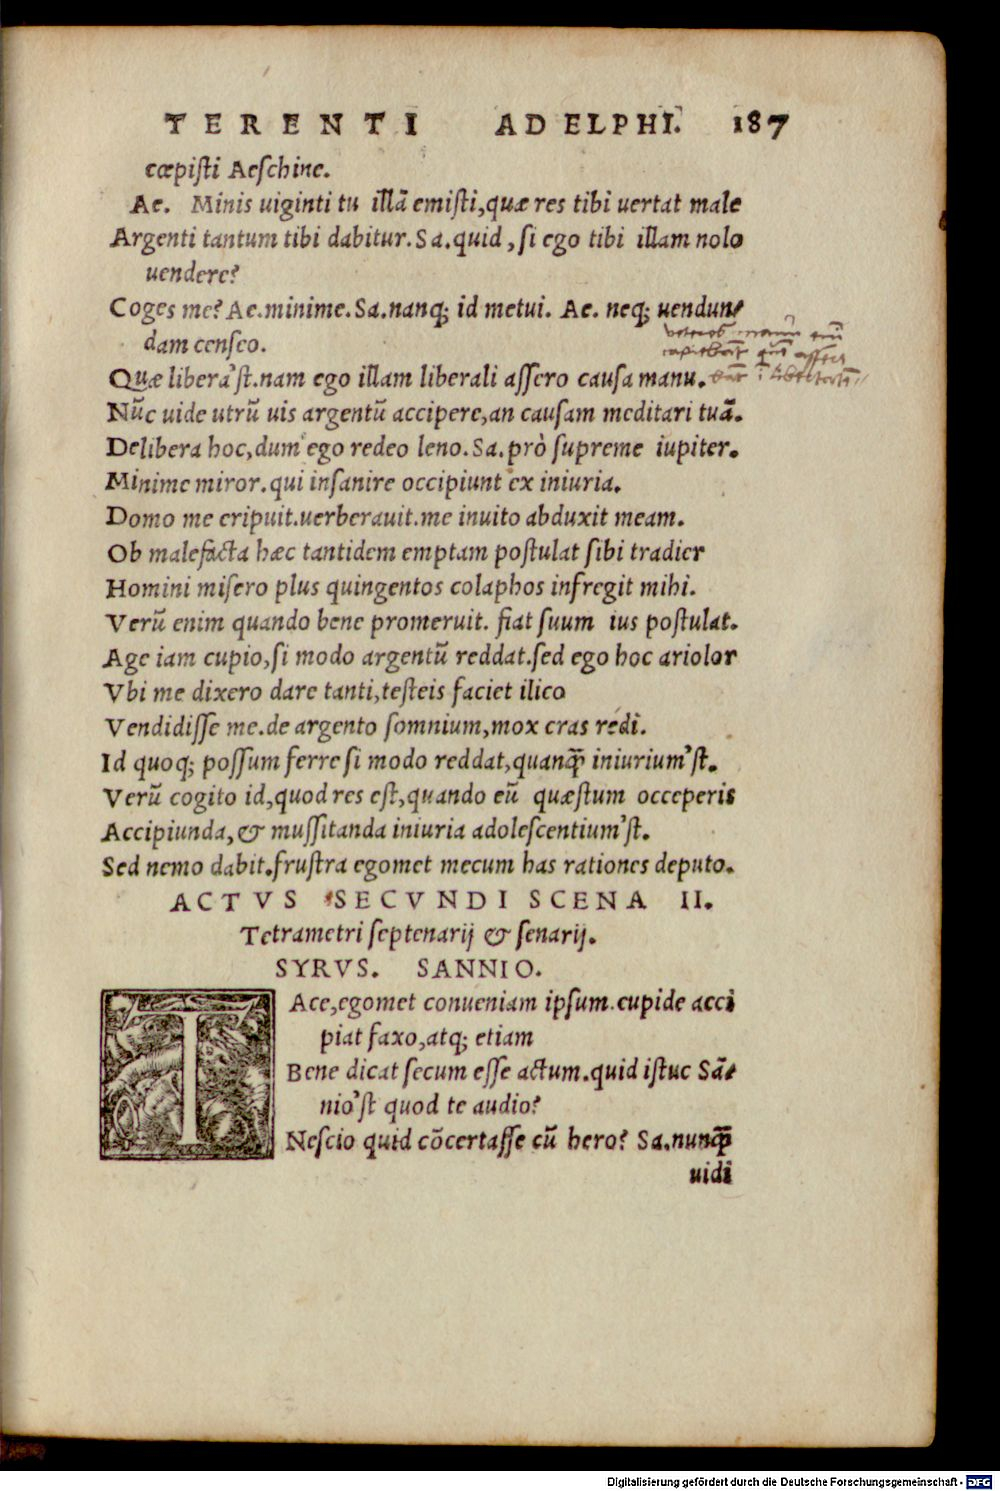 TERENTI ADELPHI. 187
cœpisti Aeschine.
Ae. Minis uiginti tu illã emisti,quæ res tibi uertat male
Argenti tantum tibi dabitur. Sa. quid, si ego tibi illam nolo
uendere?
Coges me? Ae. minime. Sa. nanq; id metui. Ae. neq; uendun-
dam censeo.
Quæ libera'st. nam ego illam liberali assero causa manu.
Nũc uide utrũ uis argentũ accipere,an causam meditari tuã.
Delibera hoc,dum ego redeo leno. Sa. prò supreme iupiter.
Minime miror. qui insanire occipiunt ex iniuria.
Domo me eripuit. uerberauit. me inuito abduxit meam.
Ob malefacta hæc tantidem emptam postulat sibi tradier
Homini misero plus quingentos colaphos infregit mihi.
Verũ enim quando bene promeruit. fiat suum ius postulat.
Age iam cupio,si modo argentũ reddat. sed ego hoc ariolor
Vbi me dixero dare tanti,testeis faciet ilico
Vendidisse me. de argento somnium,mox cras redi.
Id quoq; possum ferre si modo reddat,quanq̃ iniurium'st.
Verũ cogito id,quod res est,quando eũ quæstum occeperis
Accipiunda,& mussitanda iniuria adolescentium'st.
Sed nemo dabit. frustra egomet mecum has rationes deputo.
ACTVS SECVNDI SCENA II.
Tetrametri septenarij & senarij.
SYRVS. SANNIO.
TAce,egomet conueniam ipsum. cupide acci
piat faxo,atq; etiam
Bene dicat secum esse actum. quid istuc Sã-
nio'st quod te audio?
Nescio quid cõcertasse cũ hero? Sa. nunq̃
uidi
Digitalisierung gefördert durch die Deutsche Forschungsgemeinschaft - DFG